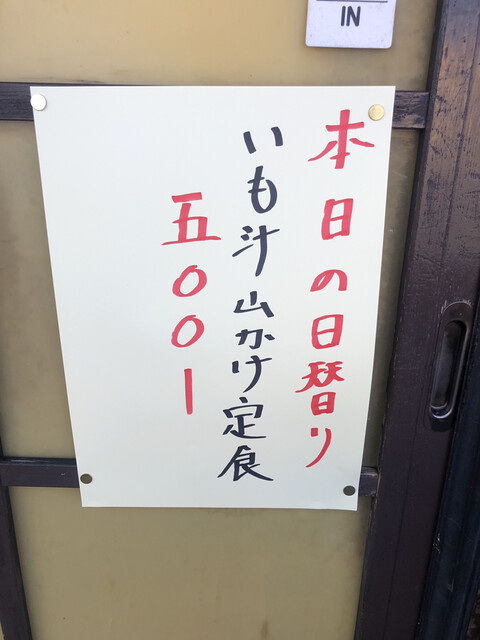 IN
本日の日替り
いも汁山かけ定食
五〇〇ー